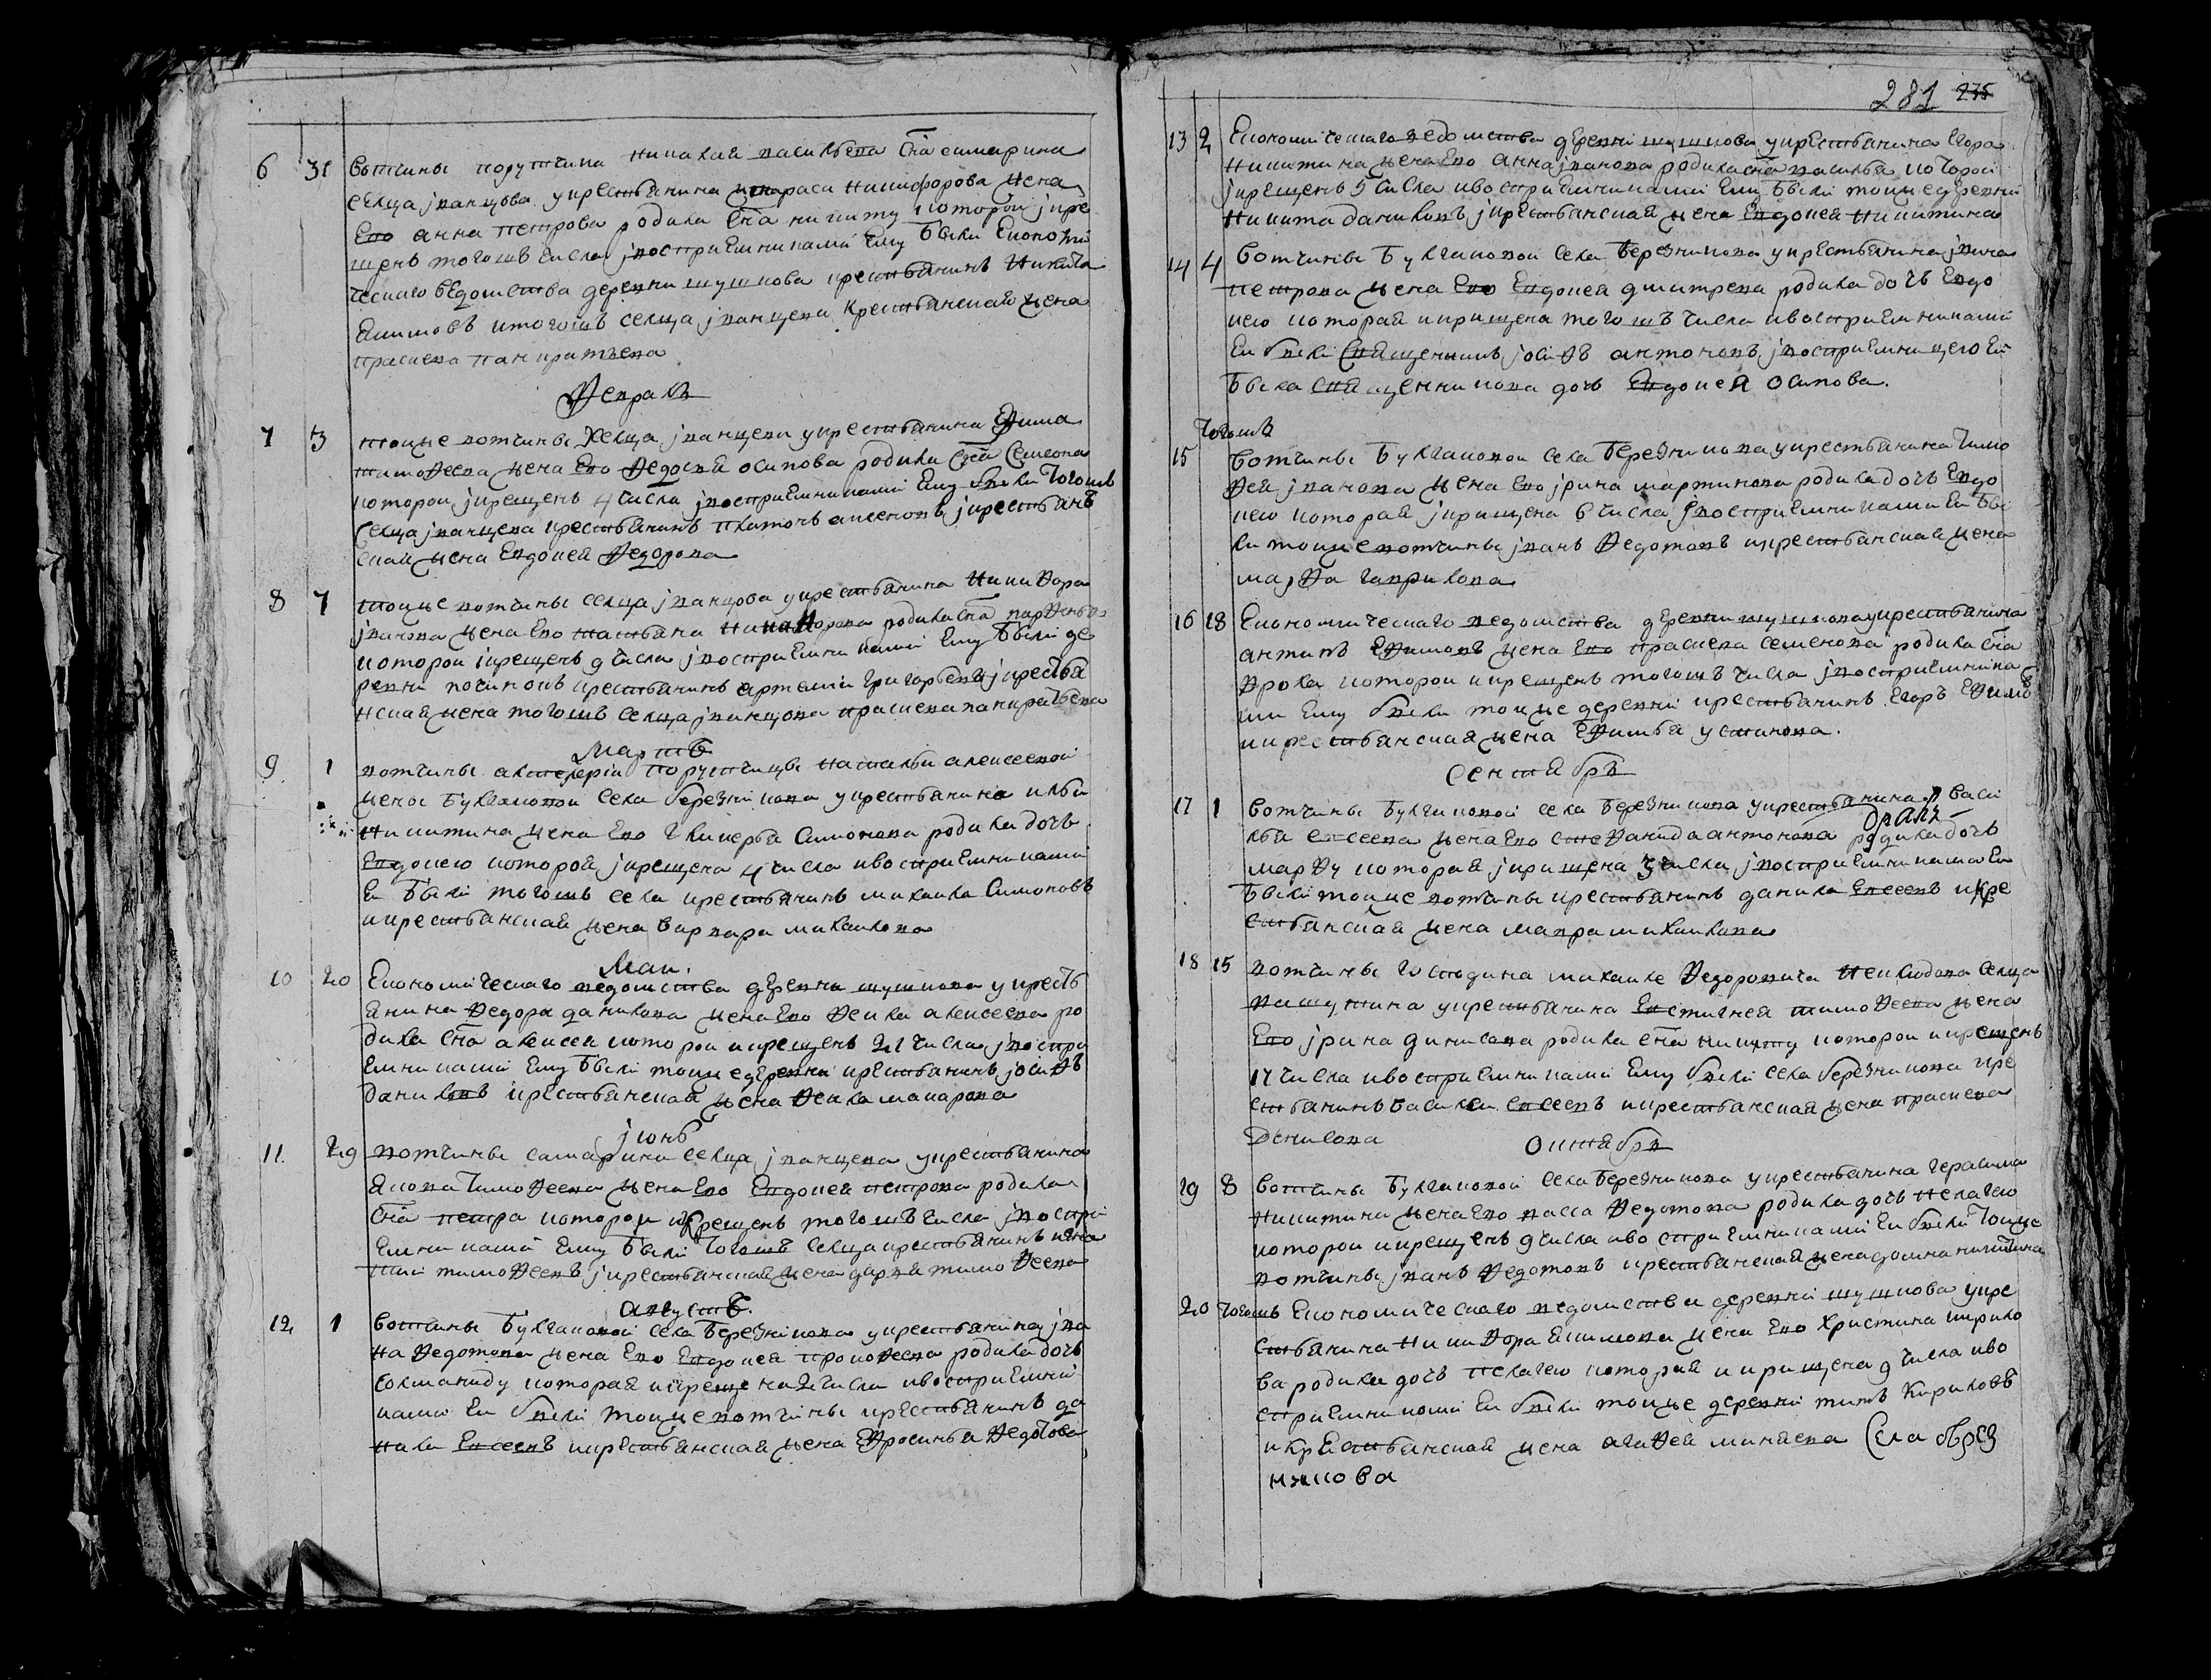 6 31 вотчины порутчика николая васильева сна самарина
селца јванцова у крестьянина тараса никифорова жена
ево анна петрова родила сна никиту которои јкре
щенъ тогожъ числа јвосприемниками ему были економи
ческаго ведомства деревни шушкова крестьянинъ никита
екимовъ итогожъ селца јванцева крестьянская жена
прасковя панкратьева
Февраль
7 3 тоиже вотчины селца јванцева укрестьянина ефима
тимофеева жена ево федосья осипова родила сна семеона
которои јкрещенъ 4 числа јвосприемниками ему были тогожъ
селца јванцева крестьянинъ платонъ аксеновъ јкрестьян
ская жена евдокея федорова
8 7 тоиже вотчины селца јванцова укрестьянина никифора
јванова жена ево татьяна никифорова родила сна парфенья
которои јкрещенъ 9 числа јвосприемниками ему были де
ревни починокъ крестьянинъ артемии григорьевъ јкрестья
нская жена тогожъ селца јванцова прасковя панкратьева
Мартъ
9 1 вотчины артилерии порутчицы натальи алексеевой
жены булгаковои села березникова укрестьянина ильи
никитина жена ево гликерья симонова родила дочь
евдокею которая јкрещена 4 числа ивосприемниками
еи были тогожъ села крестьянинъ михаила симоновъ
икрестьянская жена варвара михаилова
Маи.
10 20 економическаго ведомства деревни шушкова укресть
янина федора данилова жена ево фекла алексеева ро
дила сна алексея которои икрещенъ 21 числа јвоспри
емниками ему были тоиже деревни крестьянинъ јосифъ
даниловъ крестьянская жена фекла макарова
јюнь
11 29 вотчины самарина селца јванцева укрестьянина
якова тимофеева жена ево евдокея петрова родила
сна петра которои икрещенъ тогожъ числа јвоспри
емниками ему были тогожъ селца крестьянинъ игна
теи тимофеевъ јкрестьянская жена дарья тимофеева
августъ.
12 1 вотчины булгаковой села березникова укрестьянина јва
на федотова жена ево евдокея прокофеева родила дочь
соломаниду которая икрещена 2 числа ивосприемни
ками еи были тоиже вотчины крестьянинъ да
нила евсеевъ икрестьянская жена ефросинья федотова
281 275
13 2 економическаго ведомства деревни шушкова укрестьянина егора
никитина жена ево анна јванова родила сна василья которои
јкрещенъ 5 числа ивосприемниками ему были тоиже деревни
никита даниловъ јкрестьянская жена евдокея никитина
14 4 вотчины булгаковои села березникова укрестьянина јвана
петрова жена ево евдокея дмитрева родила дочь евдо
кею которая икрищена тогожъ числа ивосприемниками
еи были священникъ јосифъ антоновъ јвосприемницею еи
была священникова дочь евдокея осипова.
15 тогожъ вотчины булгаковои села березникова укрестьянина тимо
фея јванова жена ево јрина мартинова родила дочь евдо
кею которая јкрищена 6 числа јвосприемниками еи бы
ли тоиже вотчины јванъ федотовъ икрестьянская жена
марфа гаврилова
16 18 економическаго ведомства деревни шушкова укрестьянина
антипъ ефимовъ жена ево прасковя семенова родила сна
фрола которои икрещенъ тогожъ числа јвосприемника
ми ему были тоиже деревни крестьянинъ егоръ ефимовъ
икрестьянская жена ефимья устинова.
сентябрь
17 1 вотчины булгаковой села березникова укрестьянина васи
лья евсеева жена ево стефанида антонова родила дочь
марфу которая јкрищена 3 числа јвосприемниками еи
были тоиже вотчины крестьянинъ данила евсеевъ икре
стьянская жена мавра михаилова
18 15 вотчины господина михаиле федоровича неклюдова селца
укрестьянина евстигнея тимофеева жена
ево јрина денисова родила сна никиту которои икрещенъ
17 числа ивосприемниками ему были села березникова кре
стьянинъ василеи евсеевъ икрестьянская жена прасковя
денисова
октябрь
19 8 вотчины булгаковои села березникова укрестьянина герасима
никитина жена ево васса федотова родила дочь пелагею
которои икрещенъ 9 числа ивосприемниками еи были тоиже
вотчины јванъ федотовъ крестьянская жена домна никитина
20 тогожъ економическаго ведомства деревни шушкова укре
стьянина никифора екимова жена ево христина кирило
ва родила дочь пелагею которая икрищена 9 числа иво
сприемниками еи были тоиже деревни титъ кириловъ
икрестьянская жена агафея минаева Села берез
никова